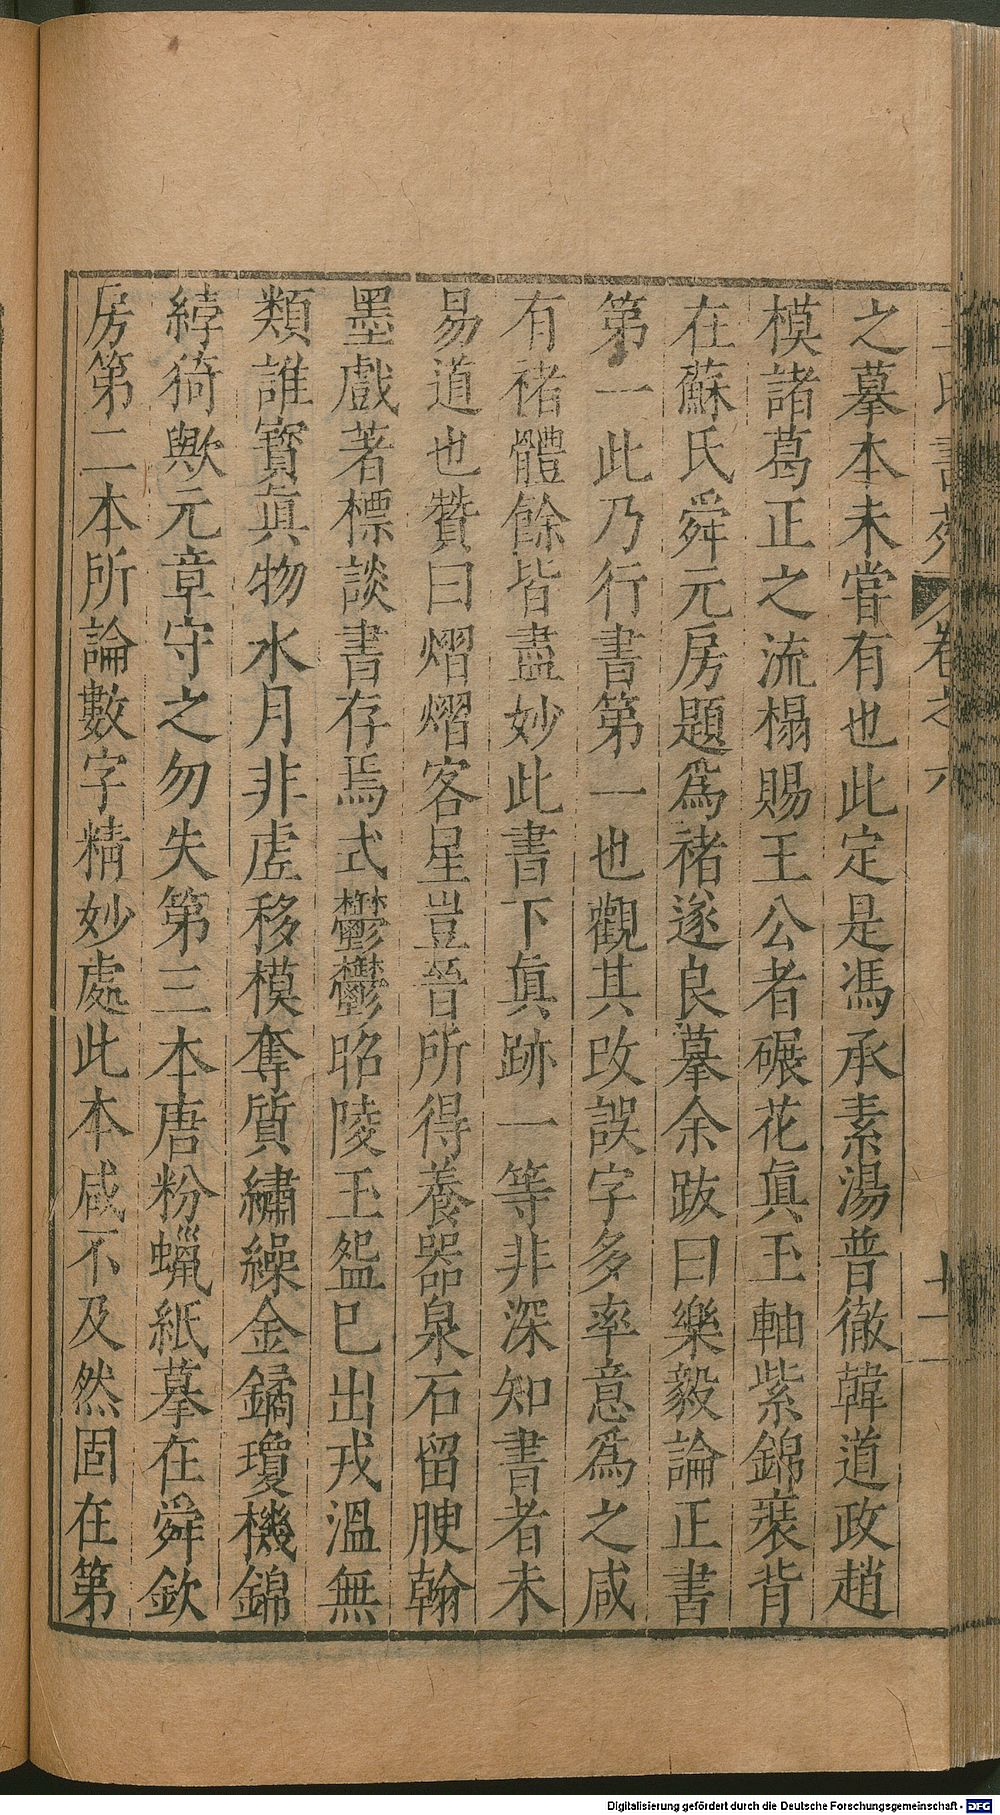 王氏書苑 卷之六 十一
之摹本未嘗有也此定是馮承素湯普徹韓道政趙
模諸葛正之流榻賜王公者碾花真玉軸紫錦裝背
在蘇氏舜元房題爲褚遂良摹余跋曰樂毅論正書
第一此乃行書第一也觀其改誤字多率意爲之咸
有褚體餘皆盡妙此書下真跡一等非深知書者未
易道也贊曰熠熠客星豈晉所得養器泉石留腴翰
墨戲著標談書存焉式鬱鬱昭陵玉盌已出戎溫無
類誰寳真物水月非虛移模奪質繡繰金鐍瓊機錦
綍猗歟元章守之勿失第三本唐粉蠟紙摹在舜欽
房第二本所論數字精妙處此本咸不及然固在第
Digitalisierung gefördert durch die Deutsche Forschungsgemeinschaft - DFG